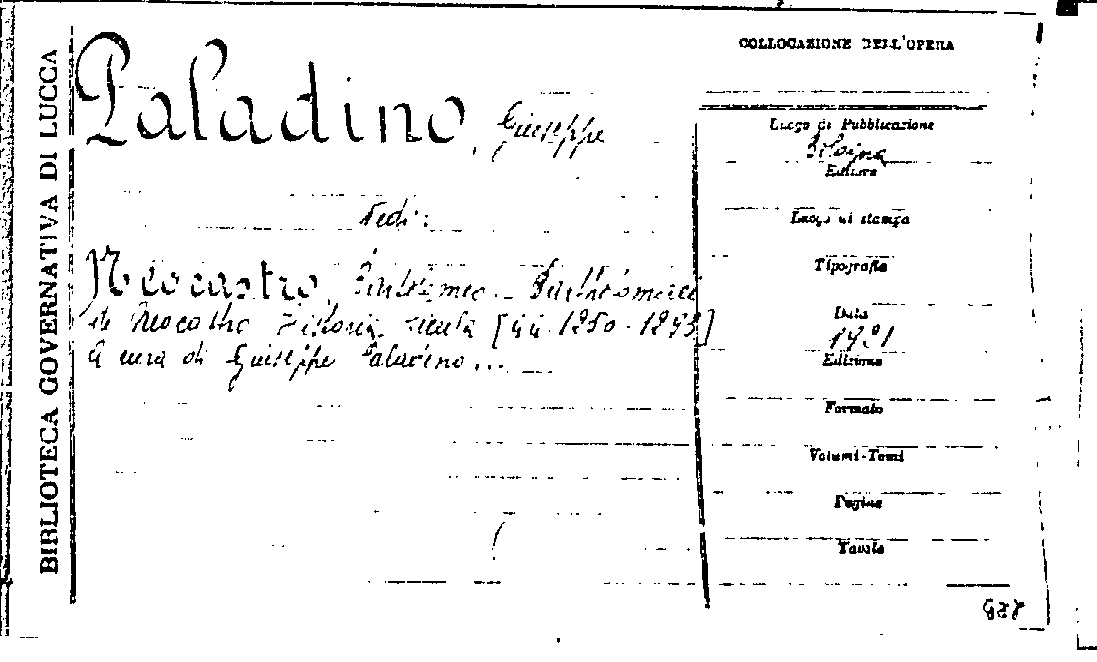 BIBLIOTECA GOVERNATIVA DI LUCCA
Paladino, Giuseppe
Vedi:
Neocastro, Bartolomeo. Bartholomaei
de Neocastro Historia sicula [aa. 1250-1293]
A cura di Giuseppe Paladino...
COLLOCAZIONE DELL'OPERA
Luogo di Pubblicazione
Bologna
Editore
Luogo di stampa
Tipografia
Data
1921
Edizione
Formato
Volumi-Tomi
Pagine
Tavole